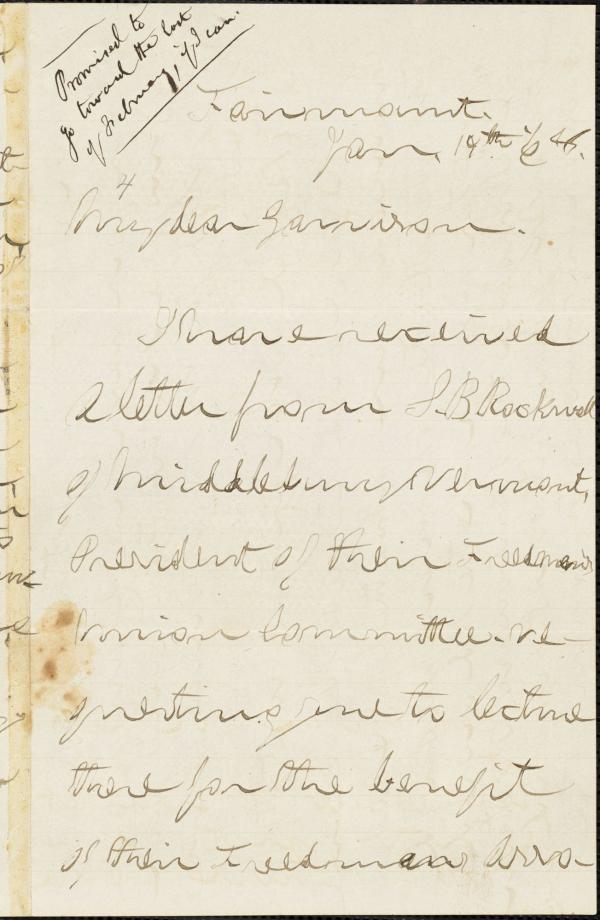 Promised to
go toward the last
of February, if I can.
Fairmount.
Jan. 19th /66.
My dear Garrison.
I have received
a letter from S. B Rockwell
of Middlebury Vermont,
President of their Freedman's
Union Committee. re-
questing me to lecture
there for the benefit
of their Freedmans Asso-